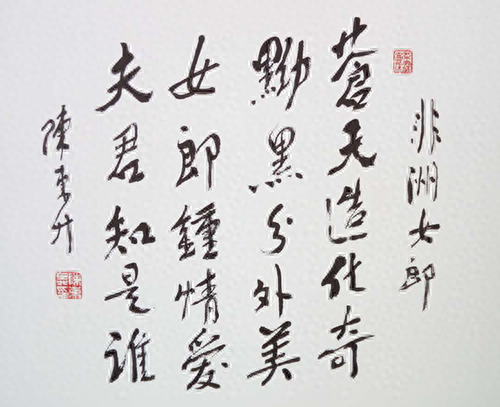 非洲女郎
蒼天造化奇
黝黑分外美
女郎鍾情愛
夫君知是誰
陳東升